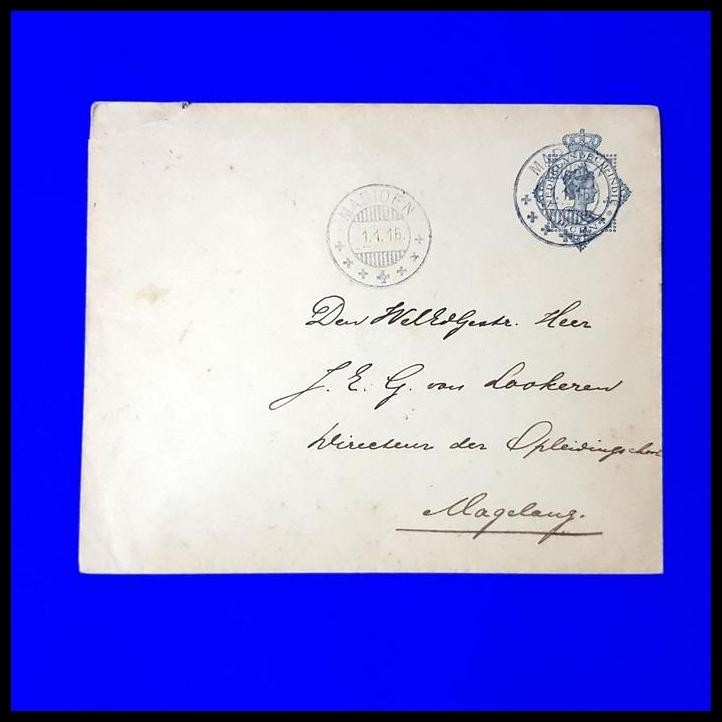 MADIOEN
1.1.16.
NEDERLANDSCH-INDIË
CENT
Den WelEdGestr. Heer
J. E. G. van Lookeren
Directeur der Opleidingschool
Magelang.